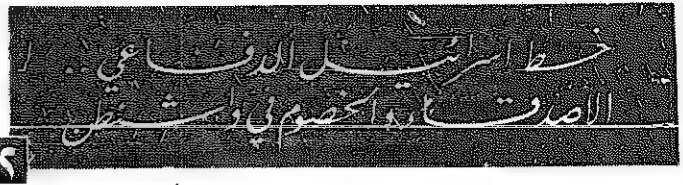 خط اسرائيل الدفاعي
الاصدقاء والخصوم في واشنطن
٢